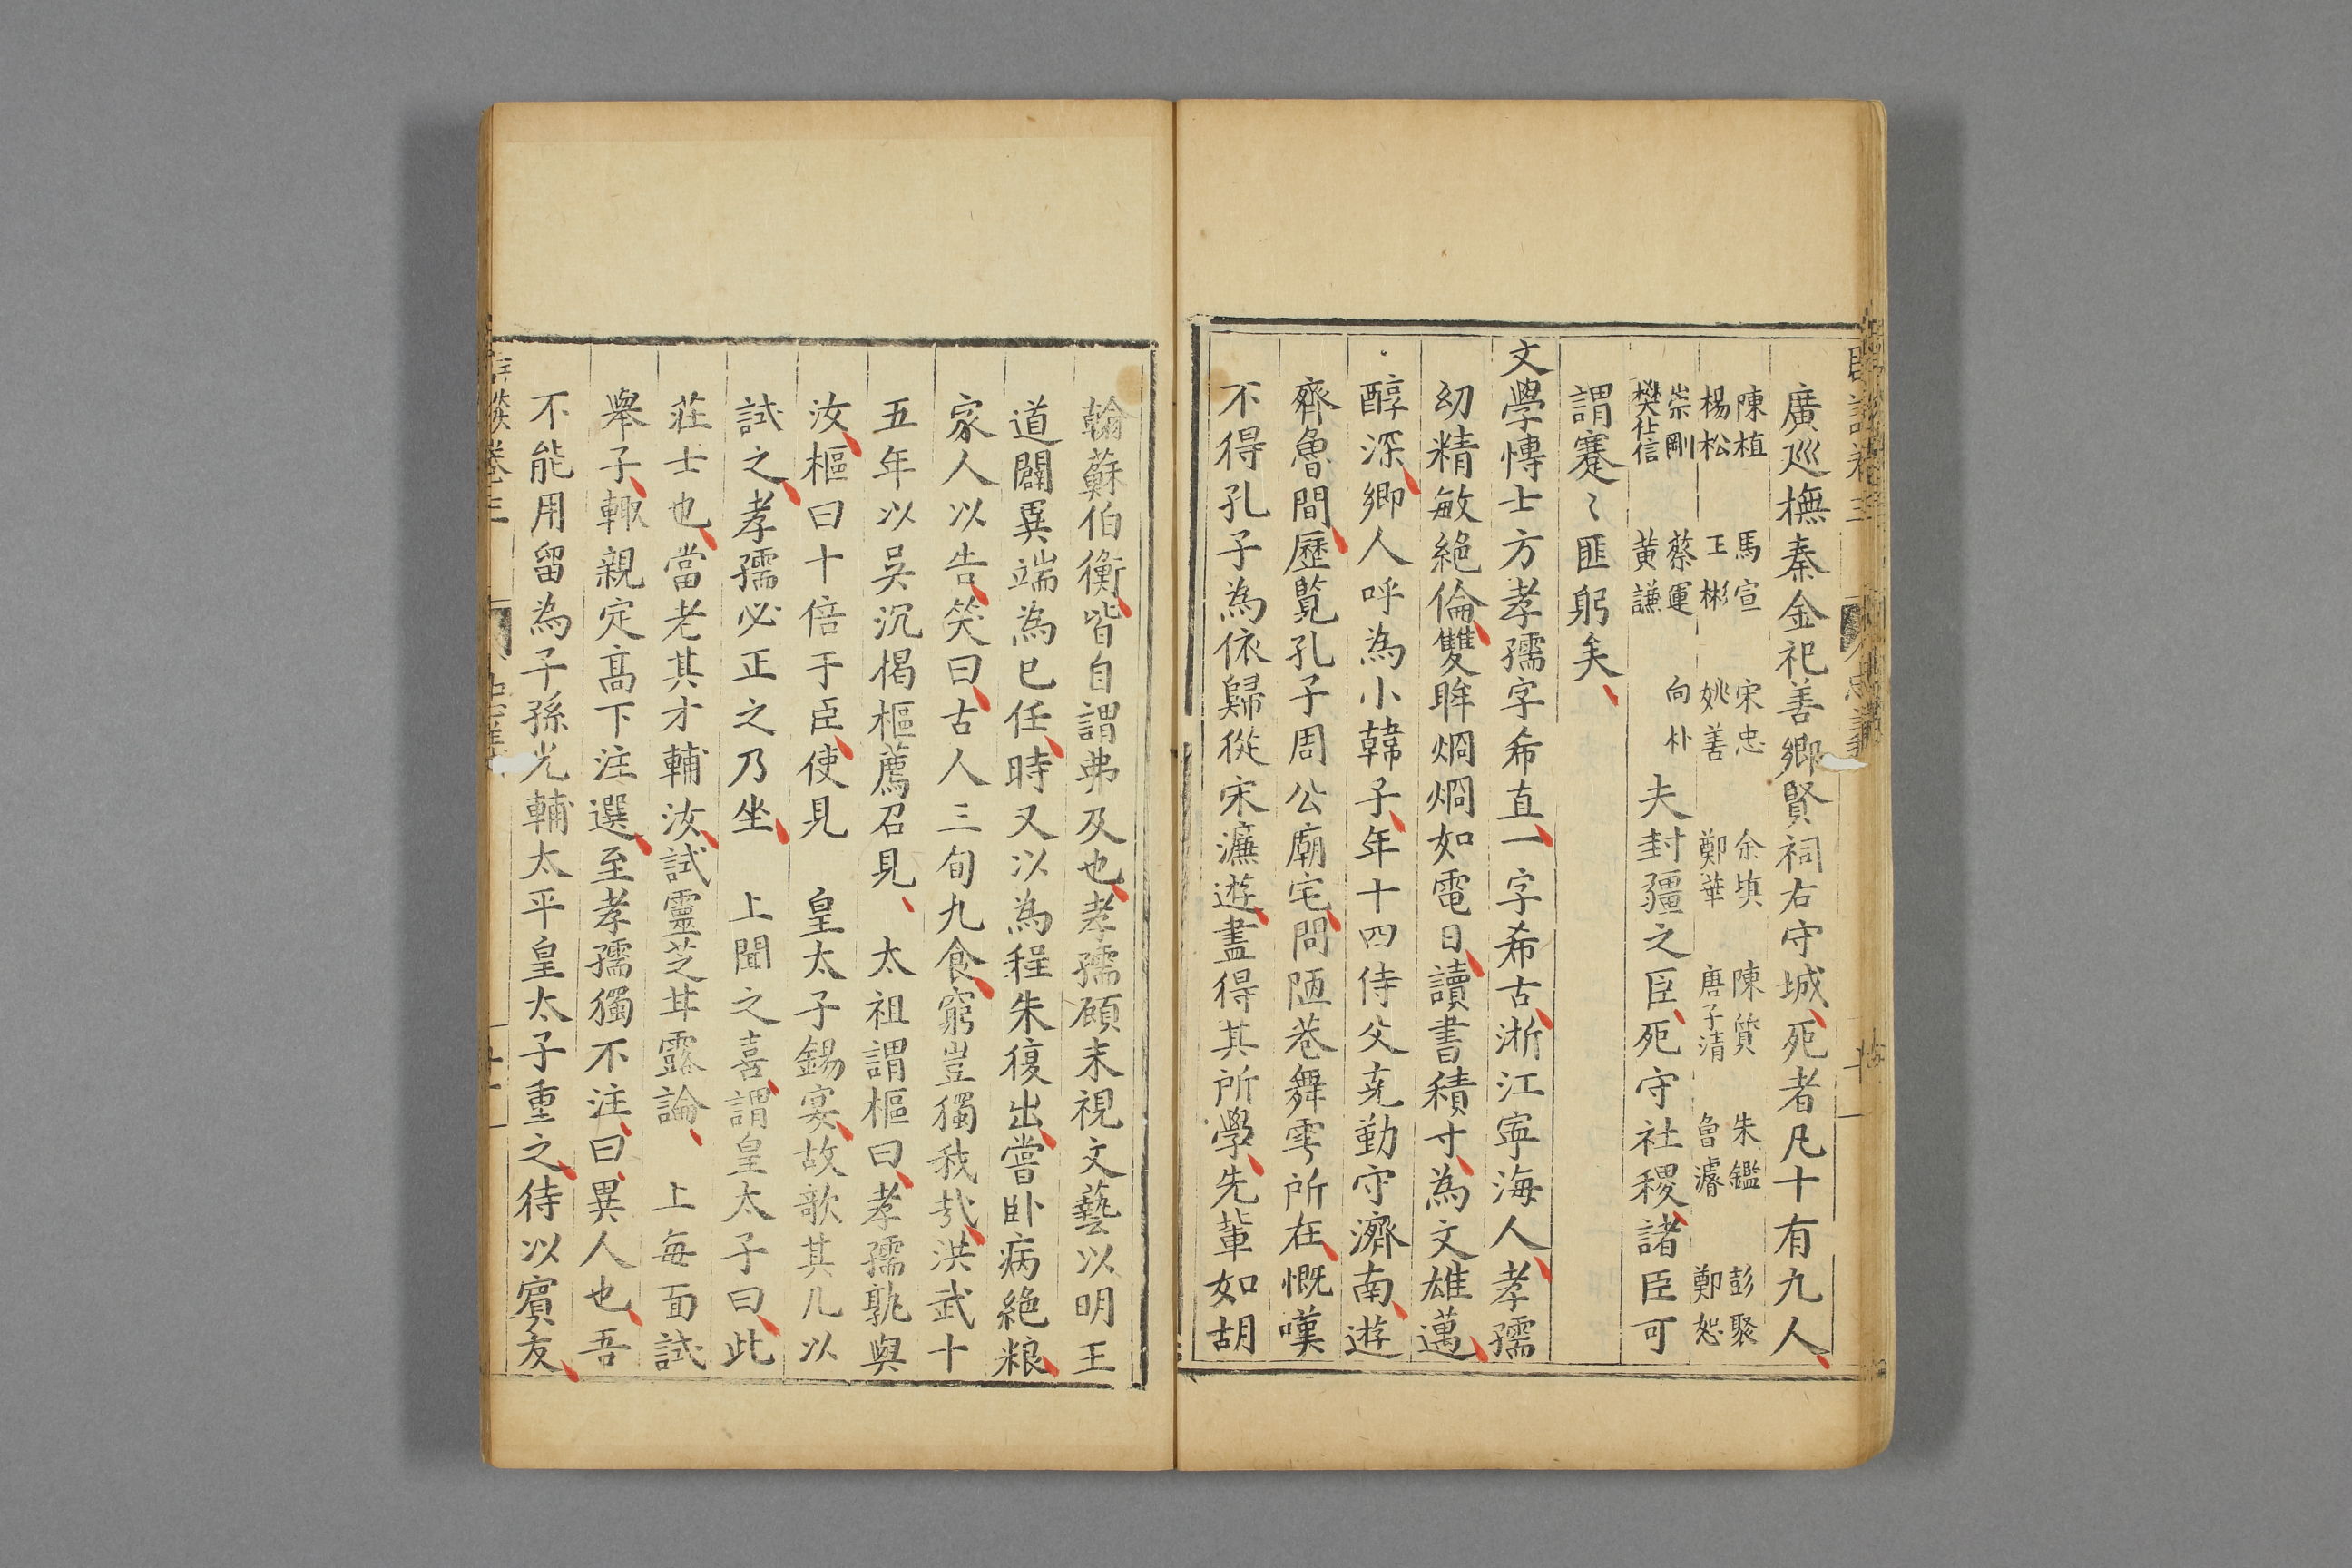 廣廵撫秦金祀善鄉賢祠右守城死者凡十有九人
陳植　馬宣　宋忠　余塡　陳質　朱鑑　彭聚
楊松　王彬　姚善　鄭華　唐子清　魯濬　鄭恕
崇剛　蔡運　向朴
樊仕信　黄謙
夫封疆之臣死守社稷諸臣可
謂蹇〻匪躬矣
文學愽士方孝孺字希直一字希古淅江寜海人孝孺
幼精敏絶倫雙眸烱烱如電日讀書積寸為文雄邁
醇深鄉人呼為小韓子年十四侍父克勤守濟南遊
齊魯間歷覧孔子周公廟宅問陋巷舞雩所在慨嘆
不得孔子為依歸從宋濂遊盡得其所學先軰如胡
翰蘇伯衡皆自謂弗及也孝孺顧末視文藝以明王
道闢異端為已任時又以為程朱復出嘗卧病絶粮
家人以告笑曰古人三旬九食窮豈獨我㢤洪武十
五年以吳沉楬樞薦召見　太祖謂樞曰孝孺孰與
汝樞曰十倍于臣使見　皇太子錫宴故欹其几以
試之孝孺必正之乃坐　上聞之喜謂皇太子曰此
莊士也當老其才輔汝試靈芝甘露論　上每面試
舉子輙親定髙下注選至孝孺獨不注曰異人也吾
不能用留為子孫光輔太平皇太子重之待以賓友